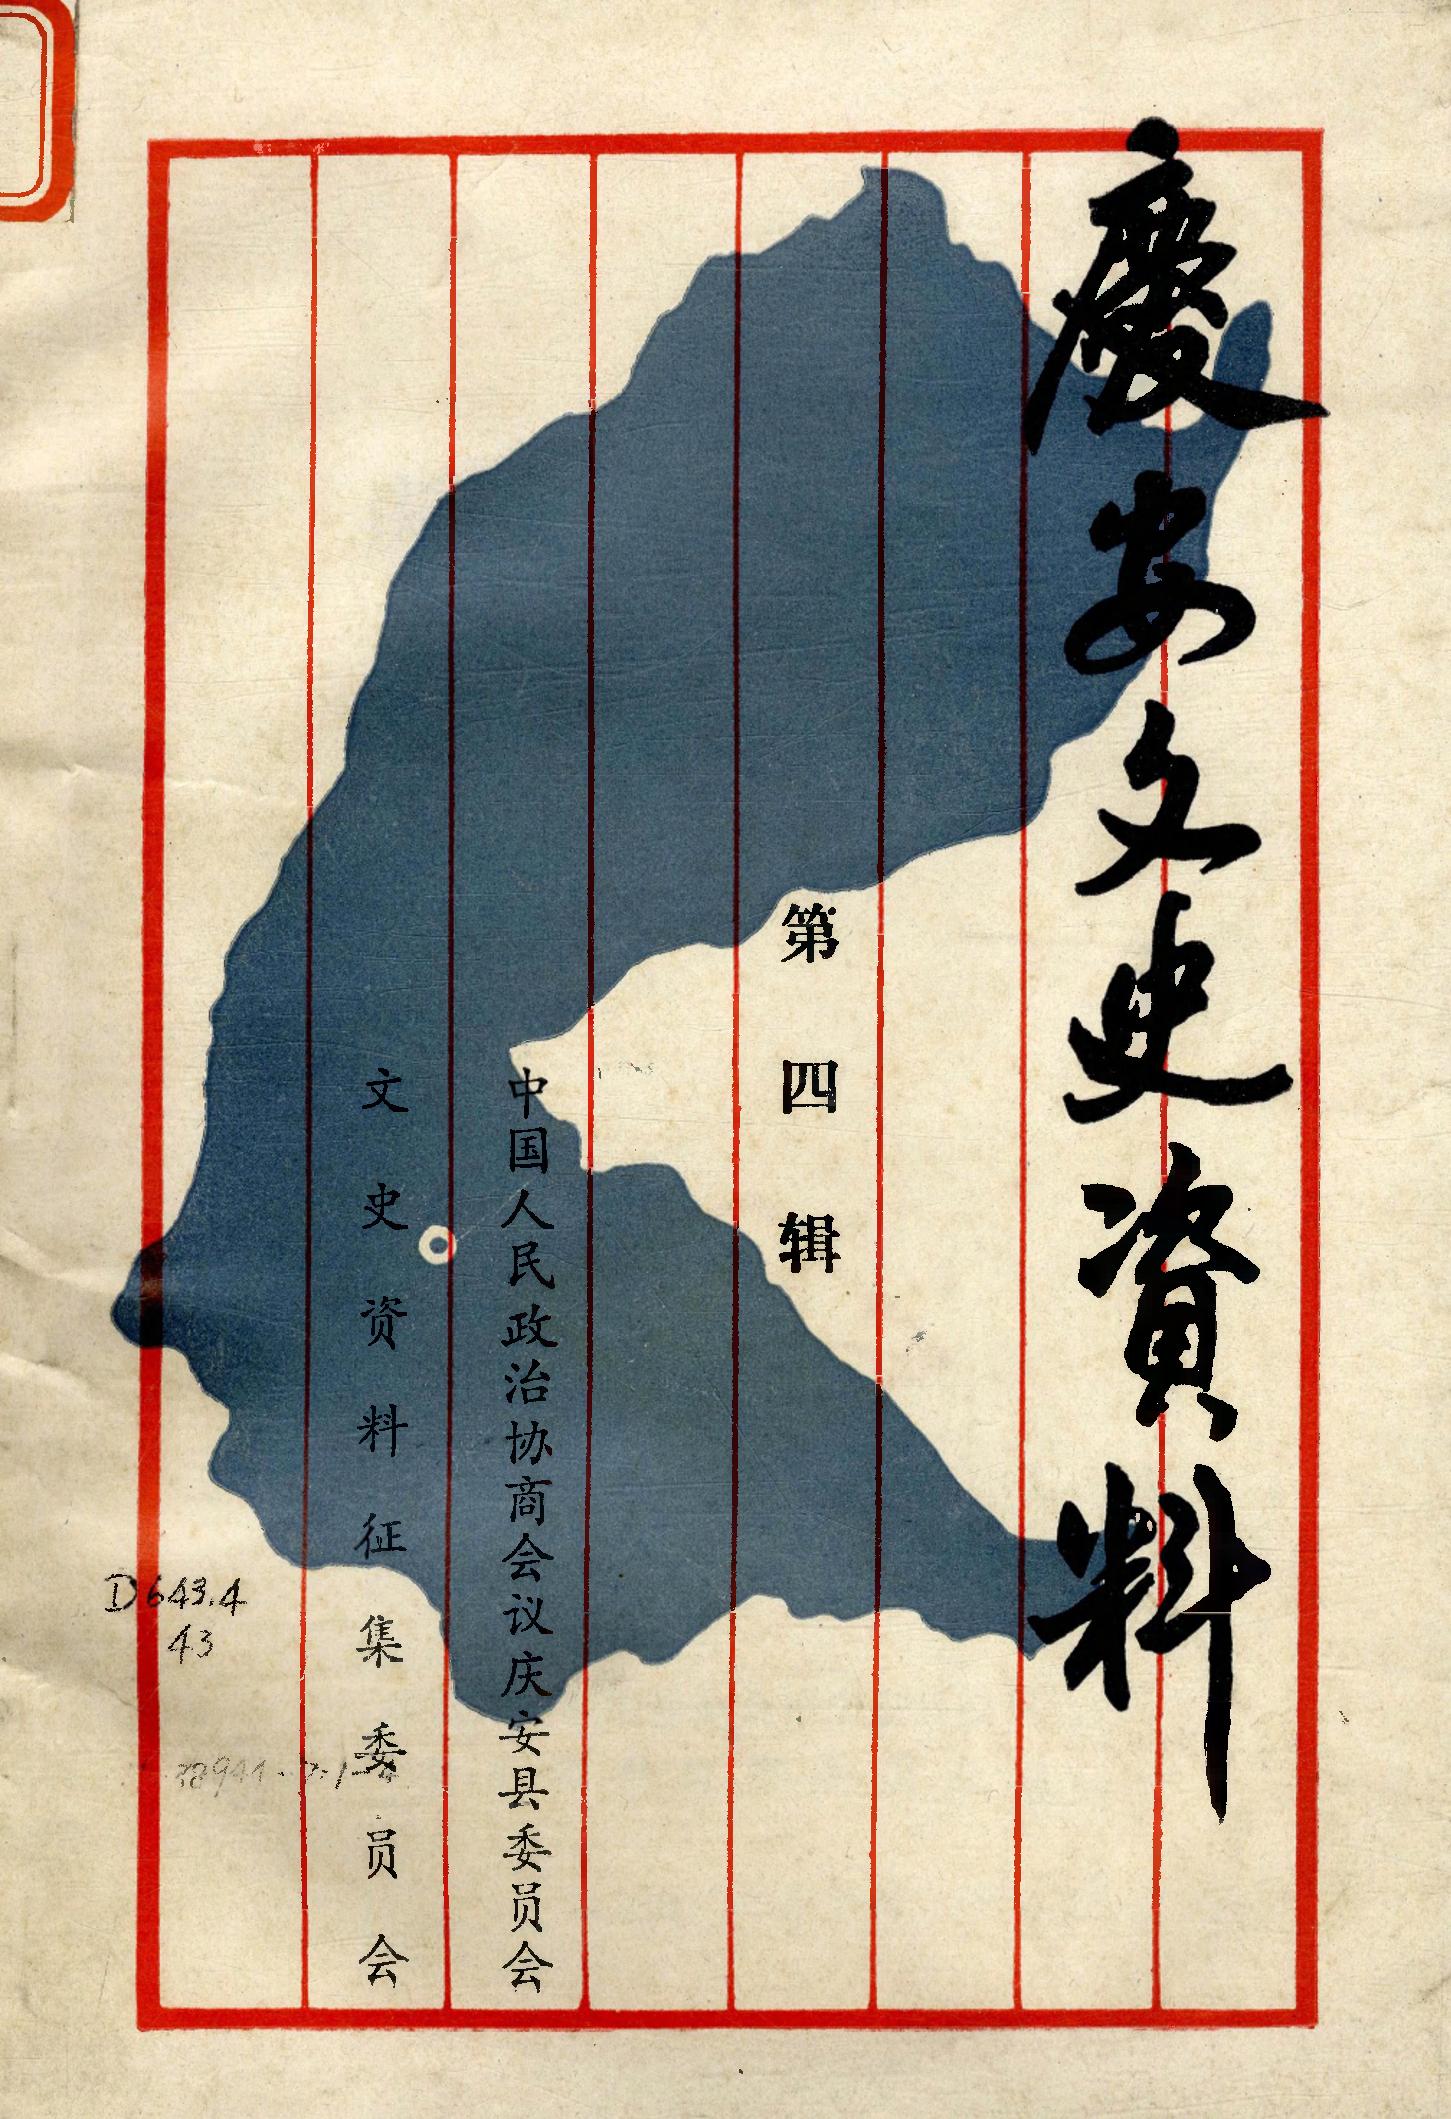 慶安文史資料
第四辑
中国人民政治协商会议庆安县委员会
文史资料征集委员会
D643.4
43